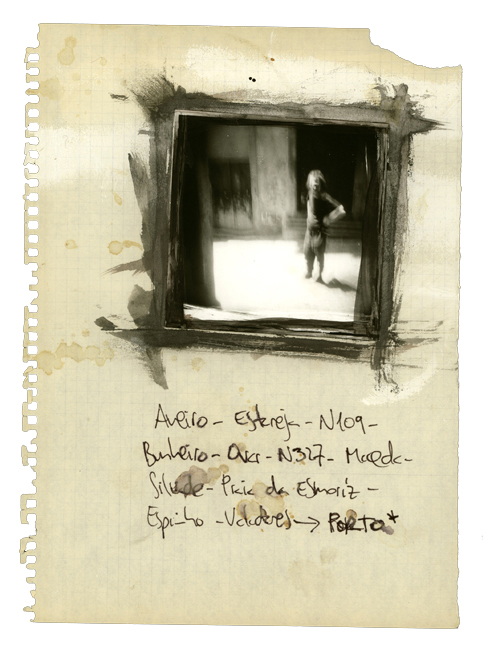 Aveiro - Estarreja - N109 -
Bunheiro - Ovar - N327 - Maceda -
Silvalde - Praia de Esmoriz -
Espinho - Valadares → PORTO*